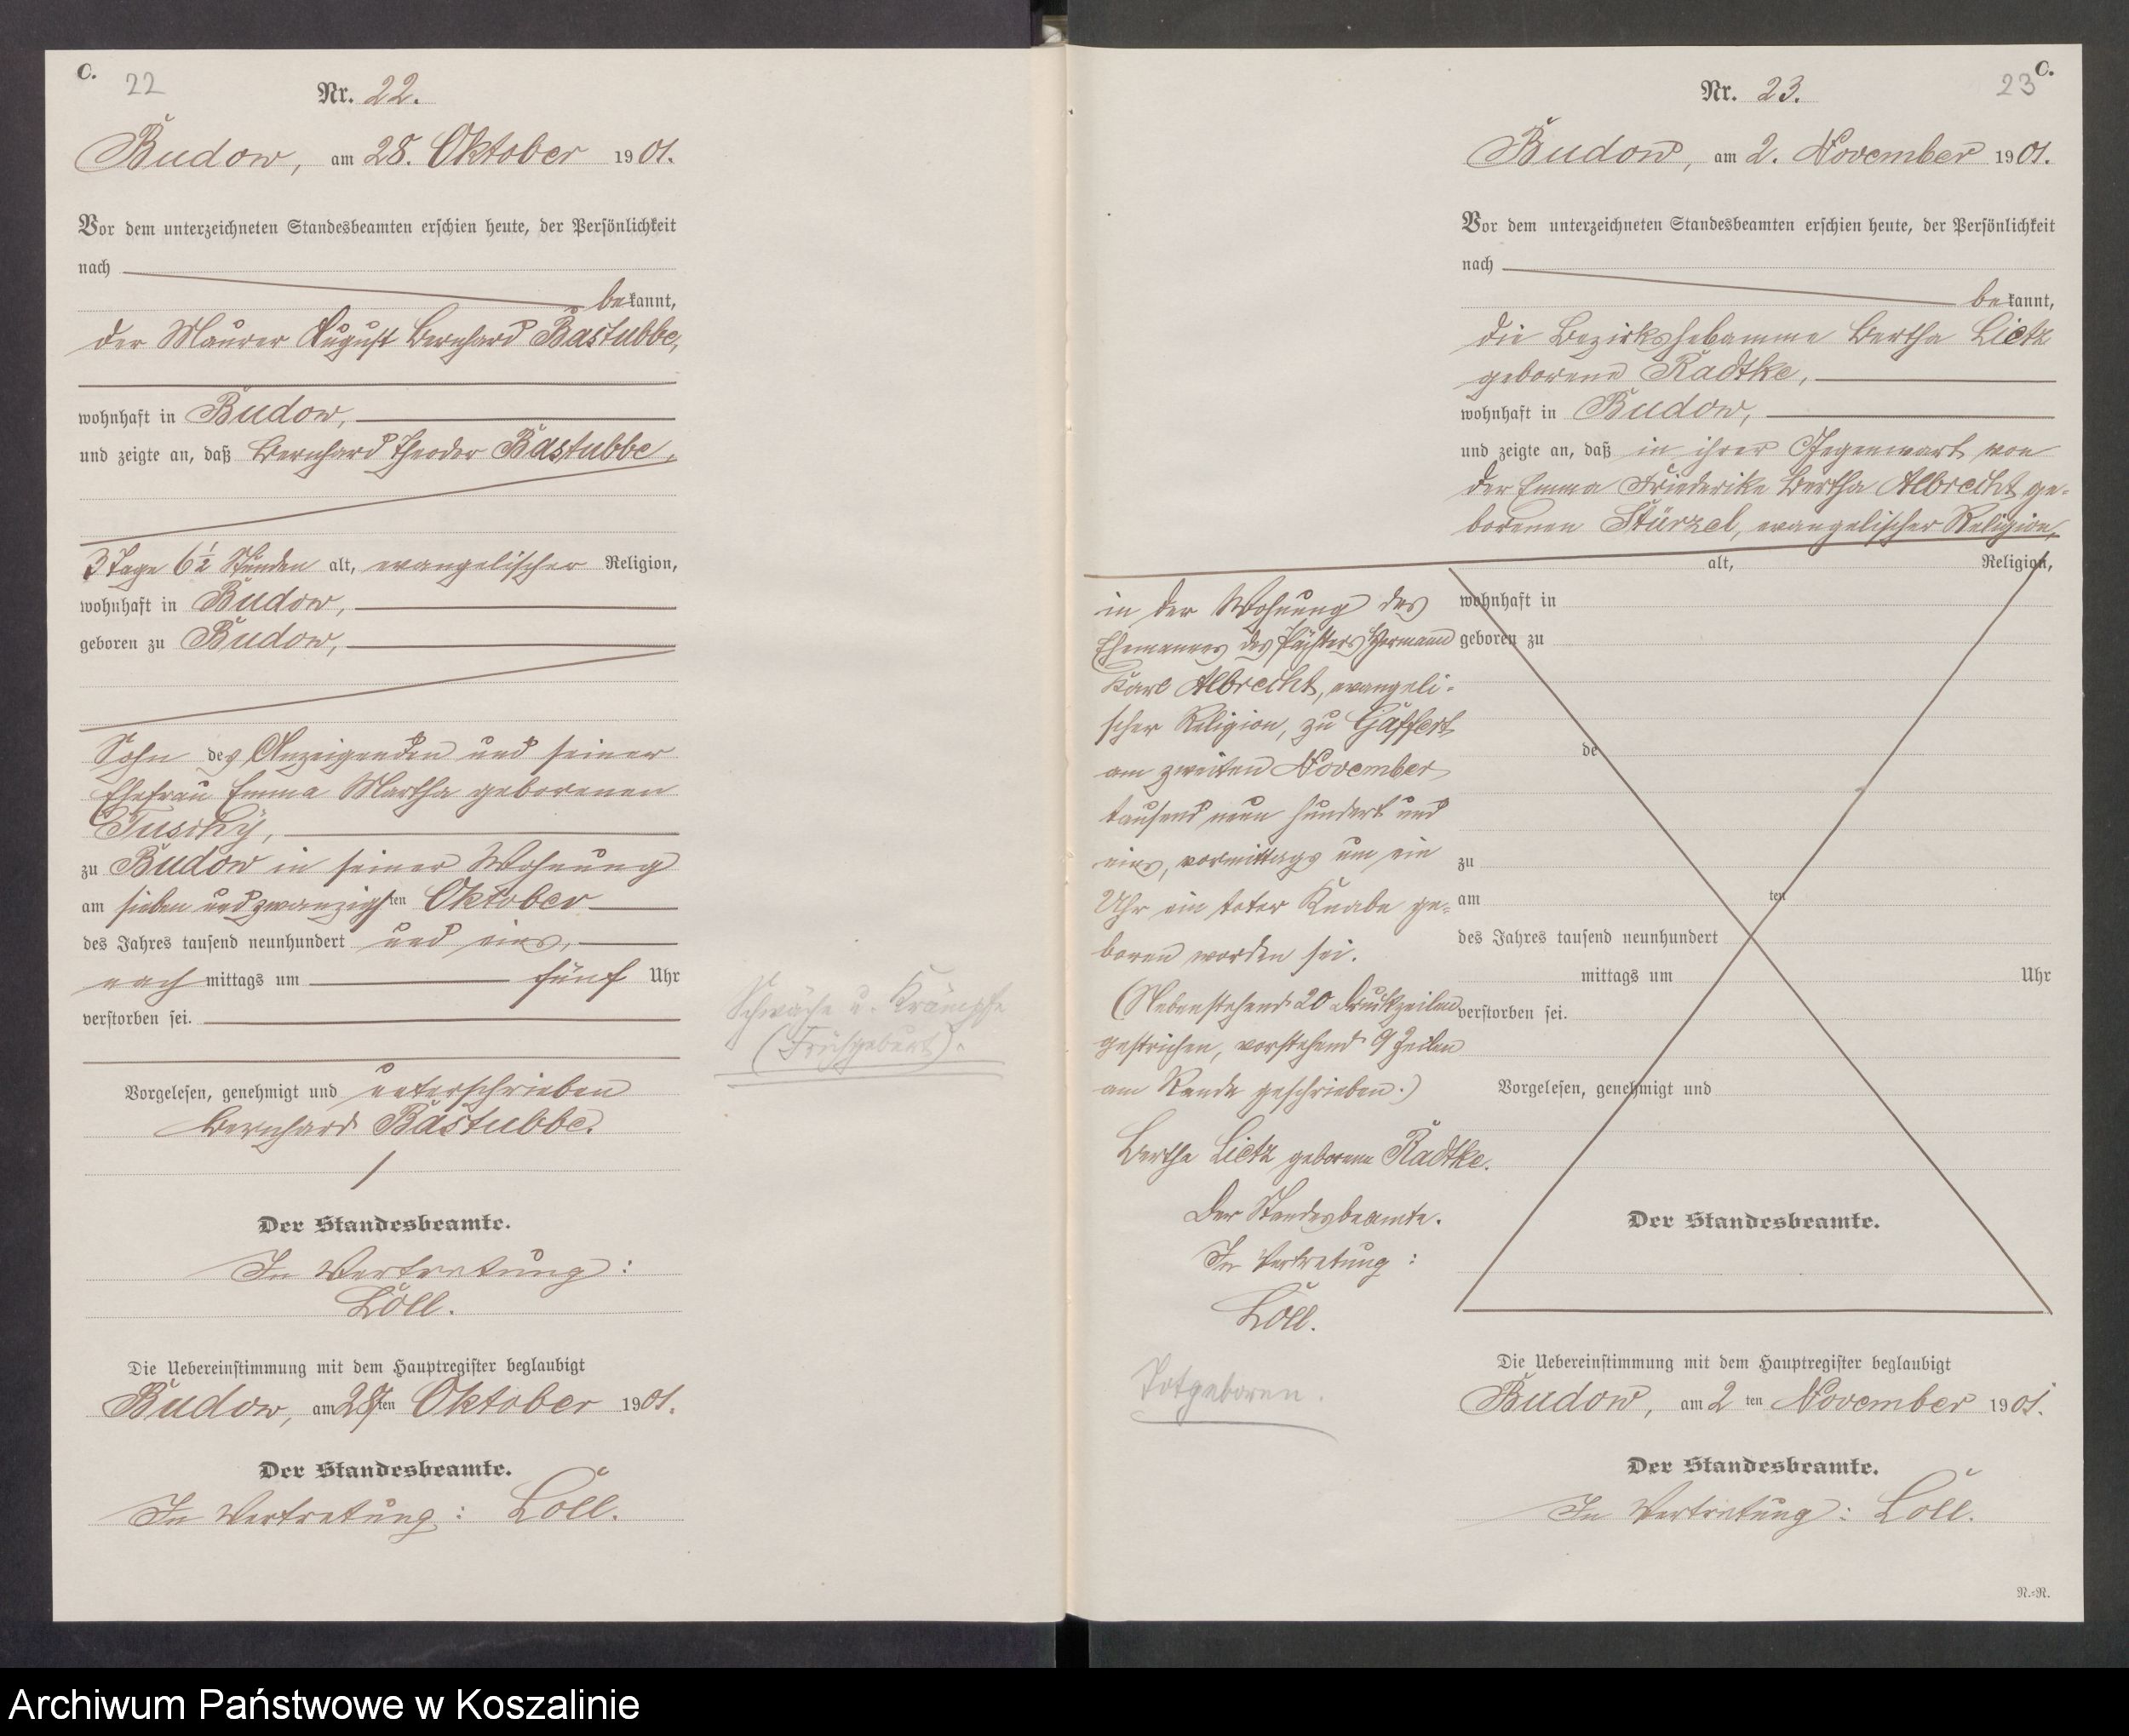 C.
22
Nr. 22.
Budow, am 28. Oktober 1901.
Vor dem unterzeichneten Standesbeamten erschien heute, der Persönlichkeit
nach
bekannt,
der Maurer August Bernhard Bastubbe,
wohnhaft in Budow,
und zeigte an, daß Bernhard Theodor Bastubbe,
3 Tage 6 1/2 Stunden alt, evangelischer Religion,
wohnhaft in Budow,
geboren zu Budow,
Sohn des Anzeigenden und seiner
Ehefrau Emma Martha geborenen
Tuschy,
zu Budow in seiner Wohnung
am sieben und zwanzigsten Oktober
des Jahres tausend neunhundert und eins,
nach mittags um fünf Uhr
verstorben sei.
Schwäche u. Krämpfe
(Frühgeburt).
Vorgelesen, genehmigt und unterschrieben
Bernhard Bastubbe.
Der Standesbeamte.
In Vertretung:
Löll.
Die Uebereinstimmung mit dem Hauptregister beglaubigt
Budow, am 28ten Oktober 1901.
Der Standesbeamte.
In Vertretung: Löll.
C.
23
Nr. 23.
Budow, am 2. November 1901.
Vor dem unterzeichneten Standesbeamten erschien heute, der Persönlichkeit
nach
bekannt,
die Bezirkshebamme Bertha Lietz
geborene Radtke,
wohnhaft in Budow,
und zeigte an, daß in ihrer Gegenwart von
der Emma Friederike Bertha Albrecht ge-
borenen Stürzel, evangelischer Religion,
alt, Religion,
wohnhaft in
geboren zu
de
zu
am ten
des Jahres tausend neunhundert
mittags um Uhr
verstorben sei.
Vorgelesen, genehmigt und
Der Standesbeamte.
in der Wohnung des
Ehemannes des Pächters Hermann
Karl Albrecht, evangeli-
scher Religion, zu Gaffert
am zweiten November
tausend neun hundert und
eins, vormittags um ein
Uhr ein toter Knabe ge-
boren worden sei.
(Nebenstehend 20 Druckzeilen
gestrichen, vorstehend 9 Zeilen
am Rande geschrieben.)
Bertha Lietz geborene Radtke.
Der Standesbeamte.
In Vertretung:
Löll.
Totgeboren.
Die Uebereinstimmung mit dem Hauptregister beglaubigt
Budow, am 2 ten November 1901.
Der Standesbeamte.
In Vertretung: Löll.
N.-N.
Archiwum Państwowe w Koszalinie